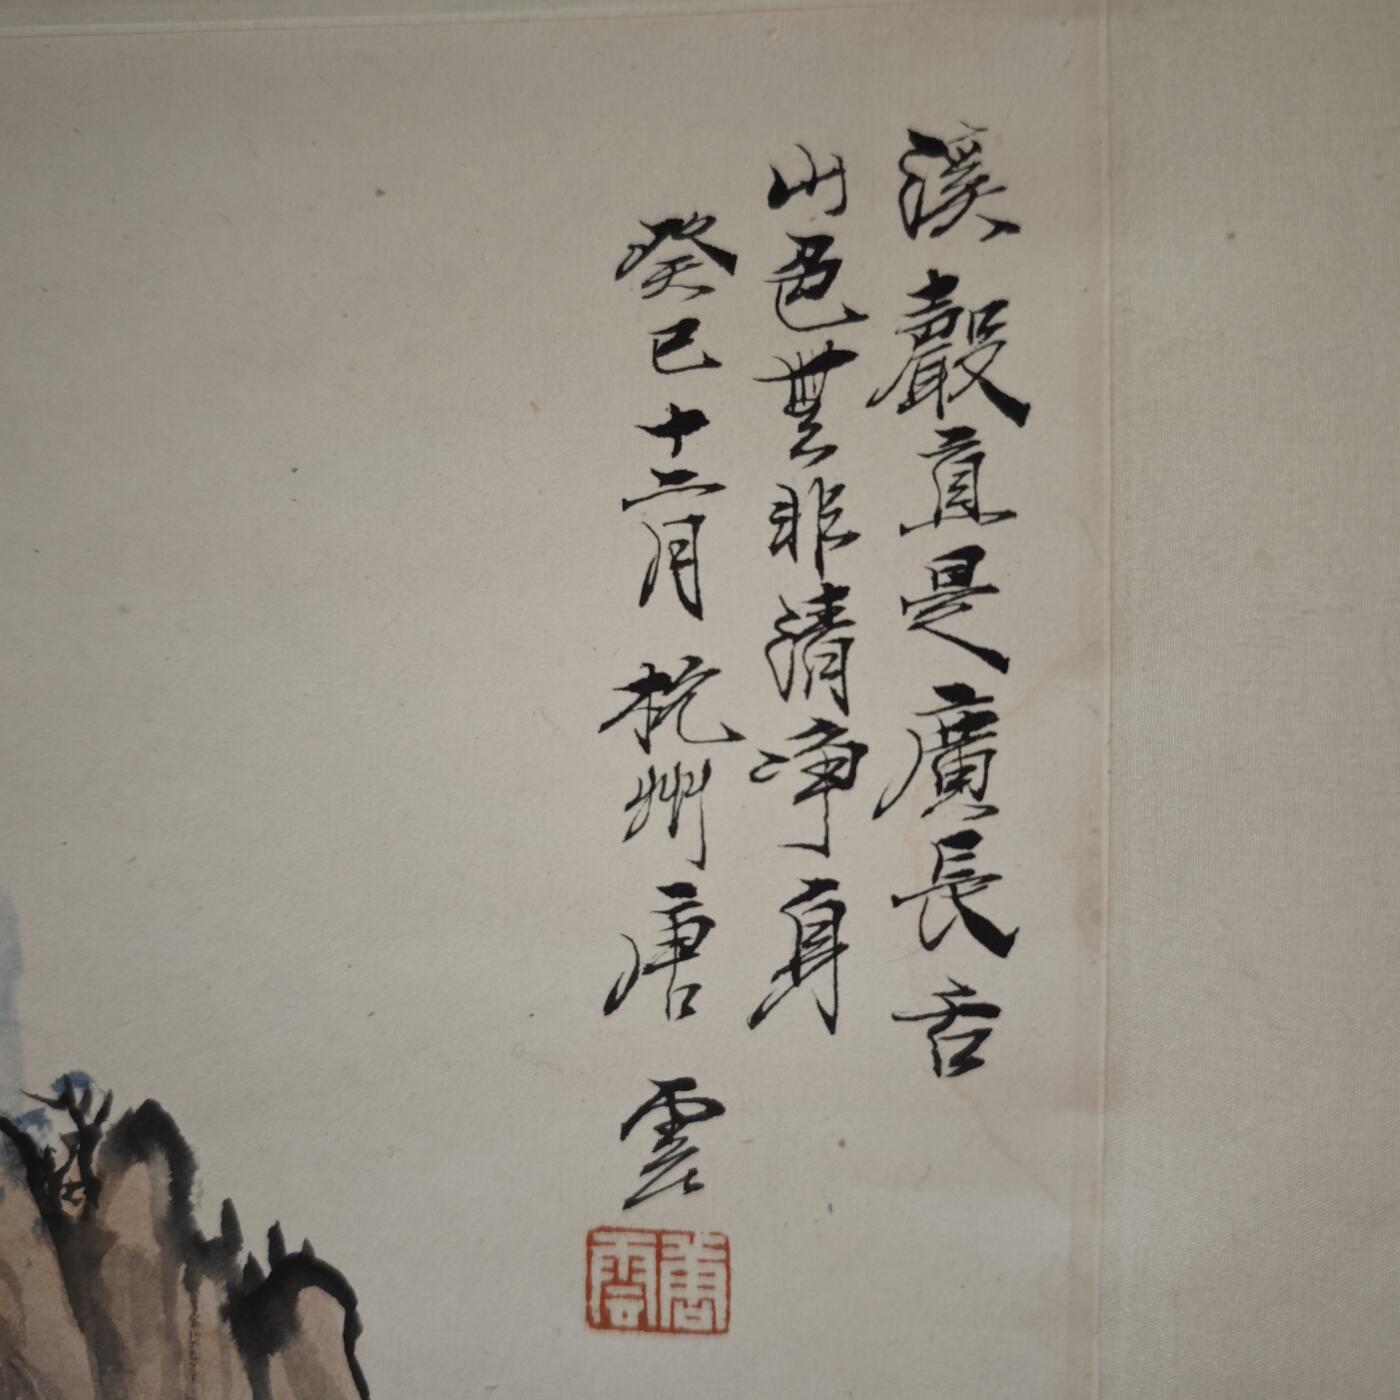 溪聲直是廣長舌
山色無非清淨身
癸巳十二月杭州唐雲
唐雲